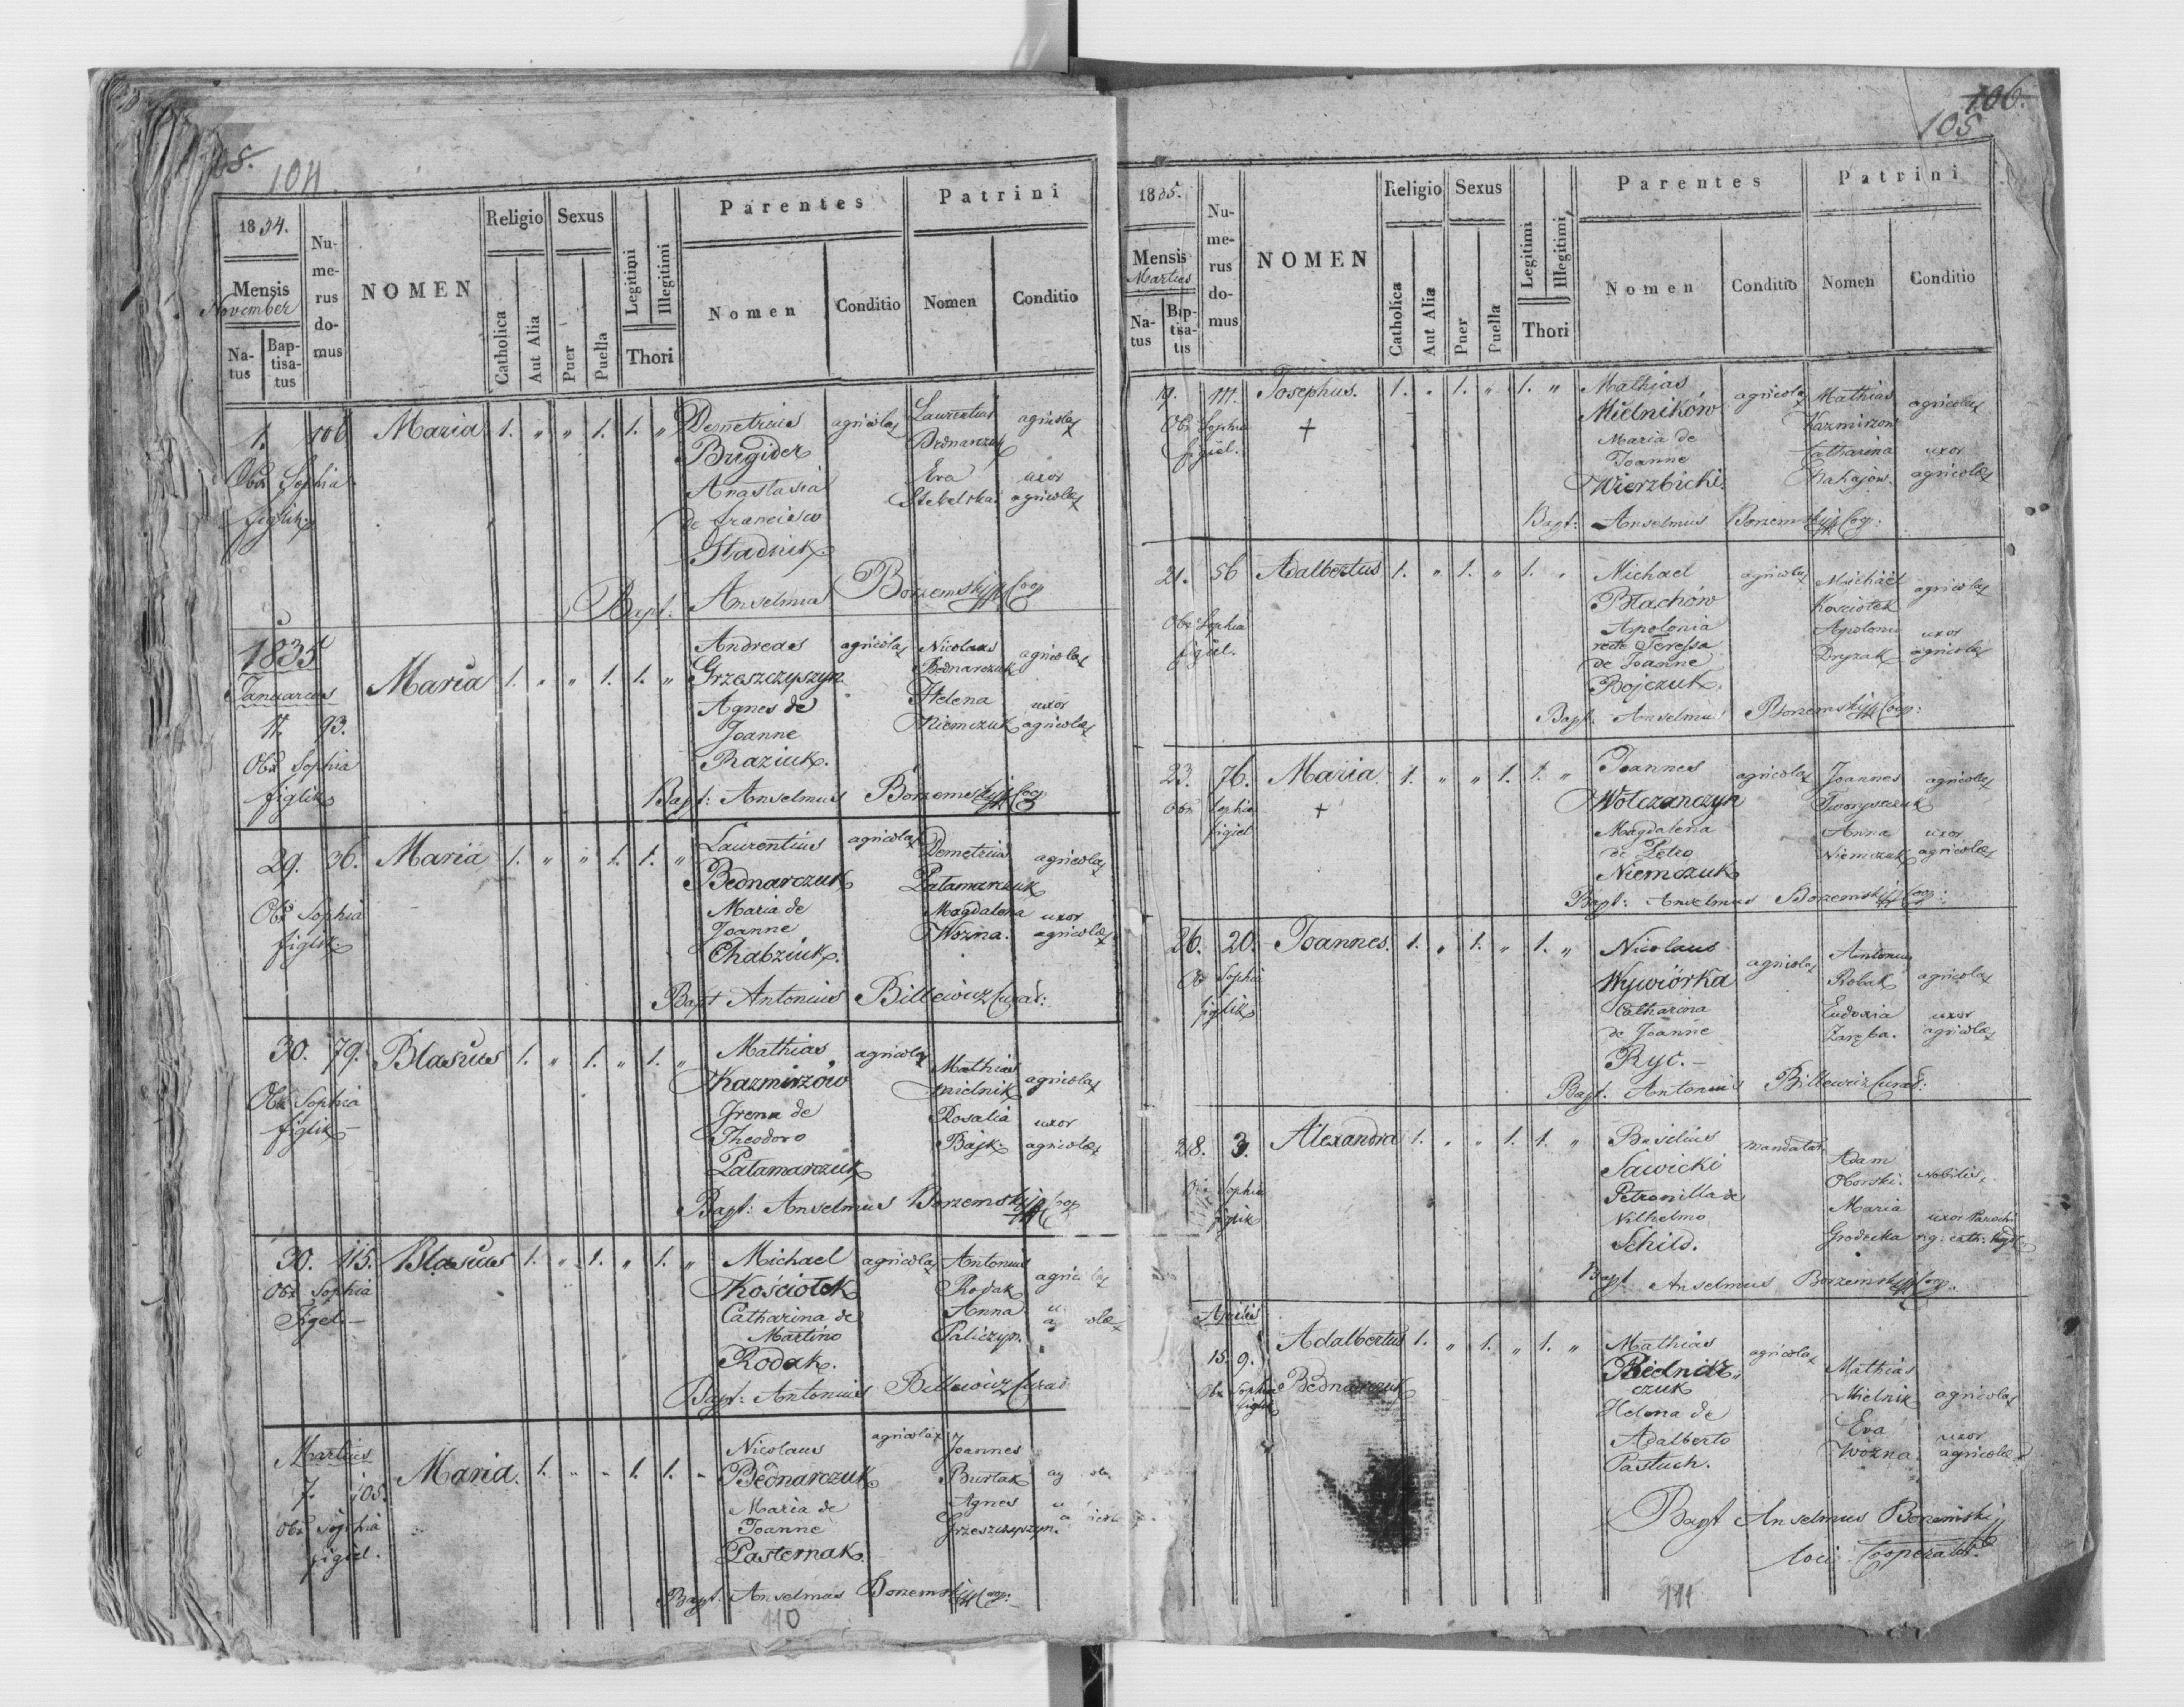 104
1834.
Mensis
November
Na-
tus
Bap-
tisa-
tus
Nu-
me-
rus
do-
mus
NOMEN
Religio
Catholica
Aut Alia
Sexus
Puer
Puella
Legitimi
Illegitimi
Thori
Parentes
Nomen
Conditio
Patrini
Nomen
Conditio
1. 106 Maria 1. " " 1. 1. " Demetrius agricola Laurentius agricola
Brigider Bednarczuk
Obs. Sophia Anastasia Eva uxor
figlik de Francisco Stebelska agricolae
Stadnik
Bapt: Anselmus Borzemskij Coop
1835
Januarius Maria 1. " " 1. 1. " Andreas agricola Nicolaus agricola
Grzeszczyszyn Bednarczuk
11. 93. Agnes de Helena uxor
Joanne Niemczuk agricolae
Obs. Sophia Raziuk.
figlik
Bapt: Anselmus Borzemskij Coop
29. 36. Maria 1. " " 1. 1. " Laurentius agricola Demetrius agricola
Bednarczuk Patamarczuk
Obs. Sophia Maria de Magdalena uxor
figlik Joanne Wozna. agricolae
Chabziuk.
Bapt Antonius Billewicz Curat:
30. 79. Blasius 1. " 1. " 1. " Mathias agricola Mathias agricola
Kazmirzów Mielnik
Obs. Sophia Irena de Rosalia uxor
figlik Theodoro Bajk agricolae
Patamarczuk
Bapt: Anselmus Borzemskij Coop
30. 115. Blasius 1. " 1. " 1. " Michael agricola Antonius
Kościołek Rodak
Obs. Sophia Catharina de Anna
Figel. Martino Paliczyn.
Rodak.
Bapt: Antonius Billewicz Curat
Martius
7. 105. Maria. 1. " " 1. 1. " Nicolaus agricola Joannes
Bednarczuk Burtak
Obs. Sophia Maria de Agnes
figiel. Joanne Grzeszczyszyn.
Pasternak.
Bapt. Anselmus Borzemskij Coop:
110
106.
105
1835.
Mensis
Martius
Na-
tus
Bap-
tisa-
tis
Nu-
me-
rus
do-
mus
NOMEN
Religio
Catholica
Aut Alia
Sexus
Puer
Puella
Legitimi
Illegitimi
Thori
Parentes
Nomen
Conditio
Patrini
Nomen
Conditio
19. 111. Josephus. 1. " 1. " 1. " Mathias agricola Mathias agricola
Mielników Kazmirzow
Obs. Sophia Maria de Catharina uxor
figiel. Joanne agricolae
Wierzbicki.
Bapt: Anselmus Borzemskij Coop:
21. 56 Adalbertus 1. " 1. " 1. " Michael agricola Michael agricola
Błachów Kosciołek
Obs. Sophia Apolonia Apolonia uxor
figiel. recte Teressa Dryzak agricolae
de Joanne
Bojczuk.
Bapt. Anselmus Borzemskij Coop:
23. 76. Maria. 1. " " 1. 1. " Joannes agricola Joannes agricola
Wołczanczyn Tworzyszczuk
Obs. Sophia Magdalena Anna uxor
figiel de Petro Niemczuk agricolae
Niemczuk
Bapt: Anselmus Borzemskij Coop:
26. 20. Joannes. 1. " 1. " 1. " Nicolaus agricola Antonius agricola
Wywiórka Robak
Obs Sophia Catharina Eudoxia uxor
figlik de Joanne Zaręba. agricolae
Ryc.-
Bapt. Antonius Billewicz Curat:
28. 3. Alexandra 1. " " 1. 1. " Basilius mandatar: Adam
Sawicki Oborski. Nobilis,
Sophia Petronilla de Maria uxor Parochi
figlik Wilhelmo Grodecka
Schild.
Bapt Anselmus Borzemskij Coop.
Aprilis
15. 9. Adalbertus 1. " 1. " 1. " Mathias agricola Mathias
Mielnik agricola
Obs Sophia Bednarczuk czuk
figlik Helena de Eva uxor
Adalberto Wozna agricolae
Pastuch.
Bapt Anselmus Borzemskij
loci Cooperator
111